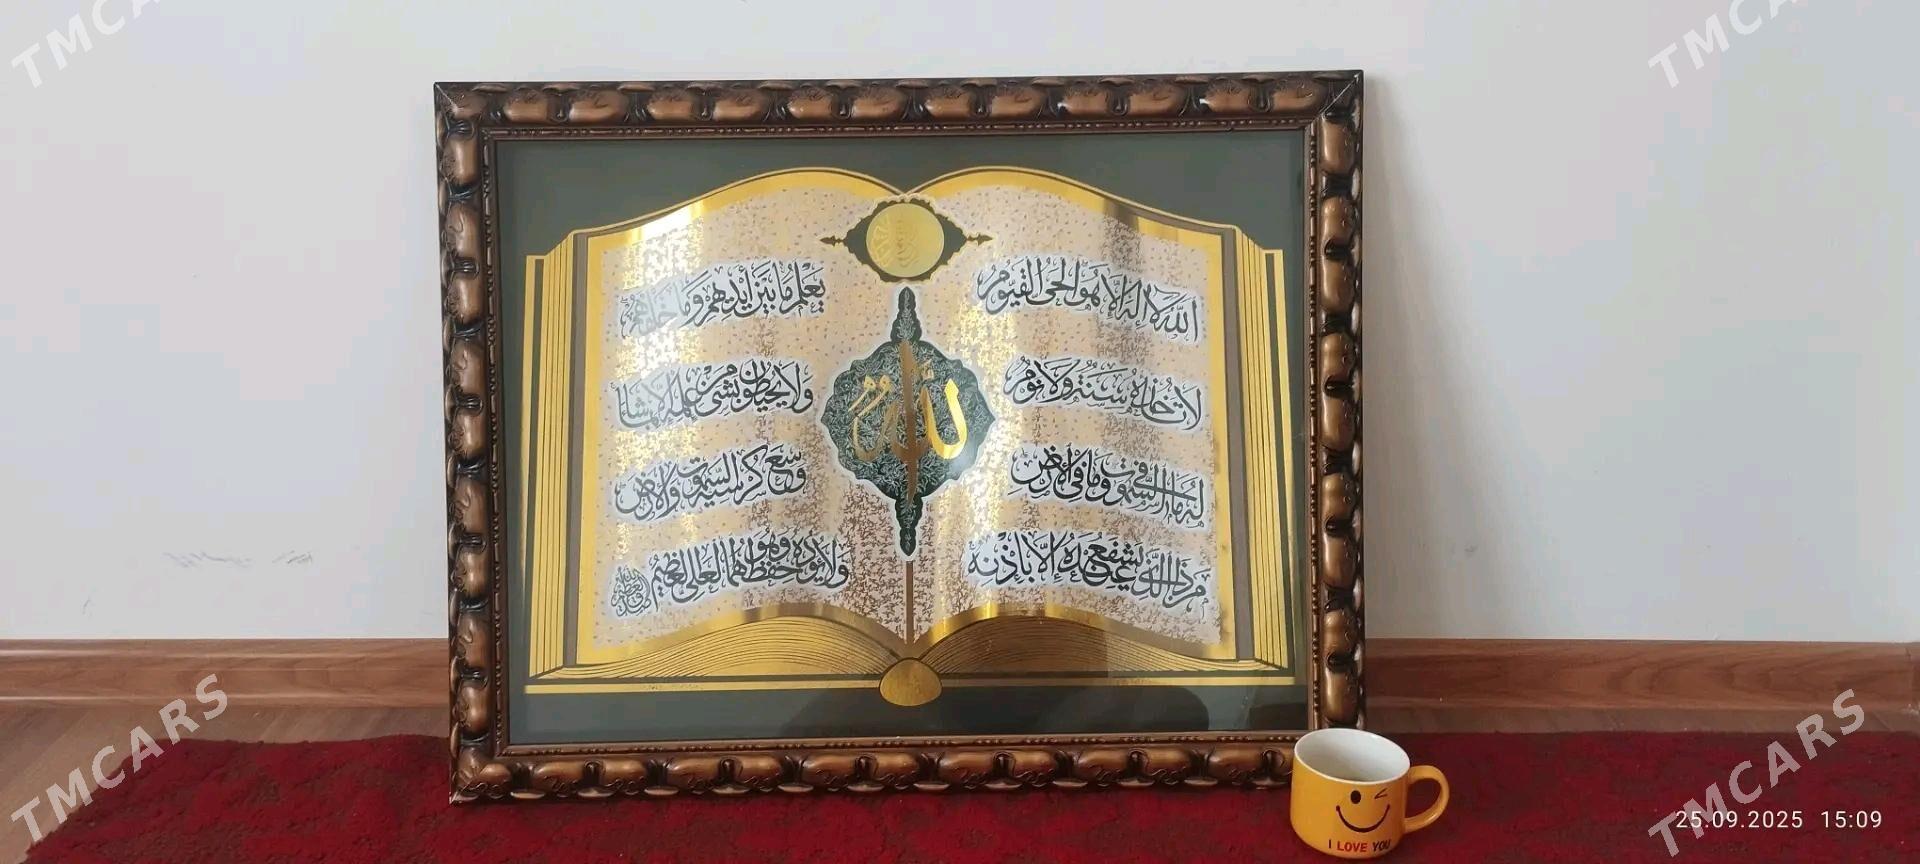 الله لا إله إلا هو الحي القيوم
لا تأخذه سنة ولا نوم
له ما في السموات وما في الأرض
من ذا الذي يشفع عنده إلا بإذنه
يعلم ما بين أيديهم وما خلفهم
ولا يحيطون بشيء من علمه إلا بما شاء
وسع كرسيه السموات والأرض
ولا يؤده حفظهما وهو العلي العظيم
الله
I LOVE YOU
25.09.2025 15:09
TMCARS
TMCARS
TMCARS
TMCARS